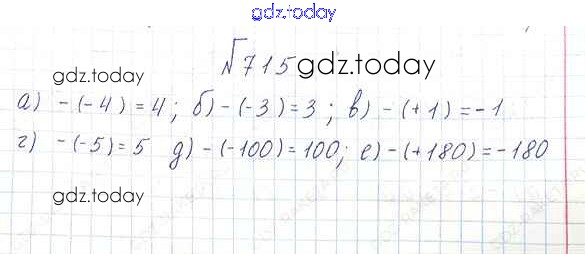 gdz.today
№ 715 gdz.today
gdz.today
а) -(-4) = 4; б) -(-3) = 3; в) -(+1) = -1
г) -(-5) = 5 д) -(-100) = 100; е) -(+180) = -180
gdz.today